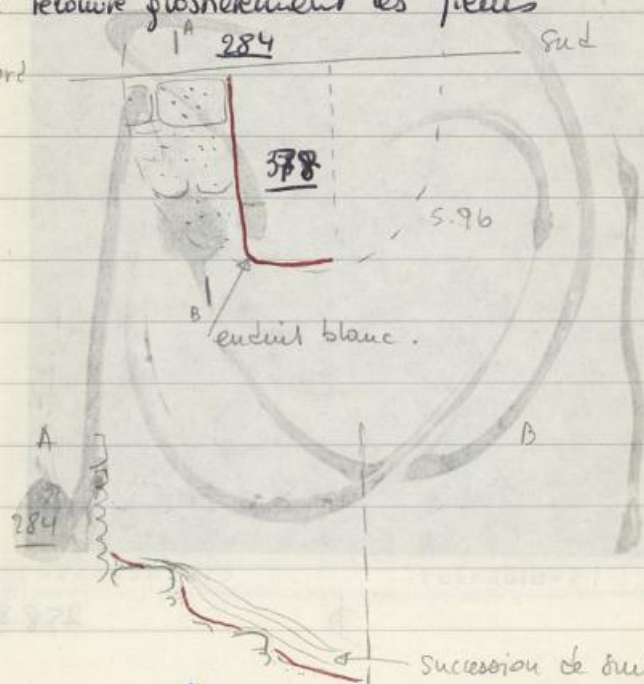 recouvre grossièrement les pierres
A
284
Sud
378
S.96
B
enduit blanc.
A
B
284
Succession de